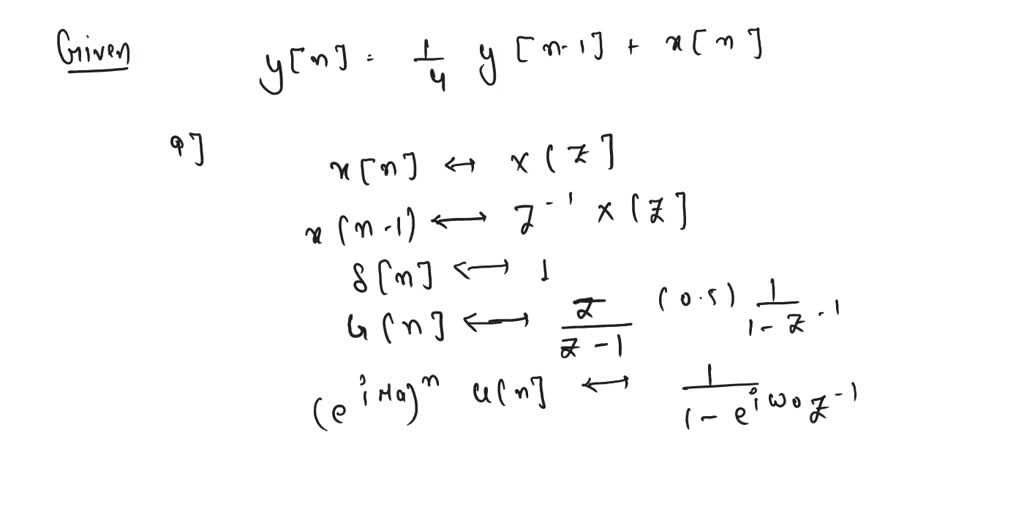 Given y[n] = 1/4 y[n-1] + x[n]
a]
x[n] ↔ X(z]
x(n-1) ↔ z^-1 X(z]
δ[n] ↔ 1
u[n] ↔ z/(z-1) (or) 1/(1-z^-1)
(e^i)^n u[n] ↔ 1/(1-e^iω0 z^-1)